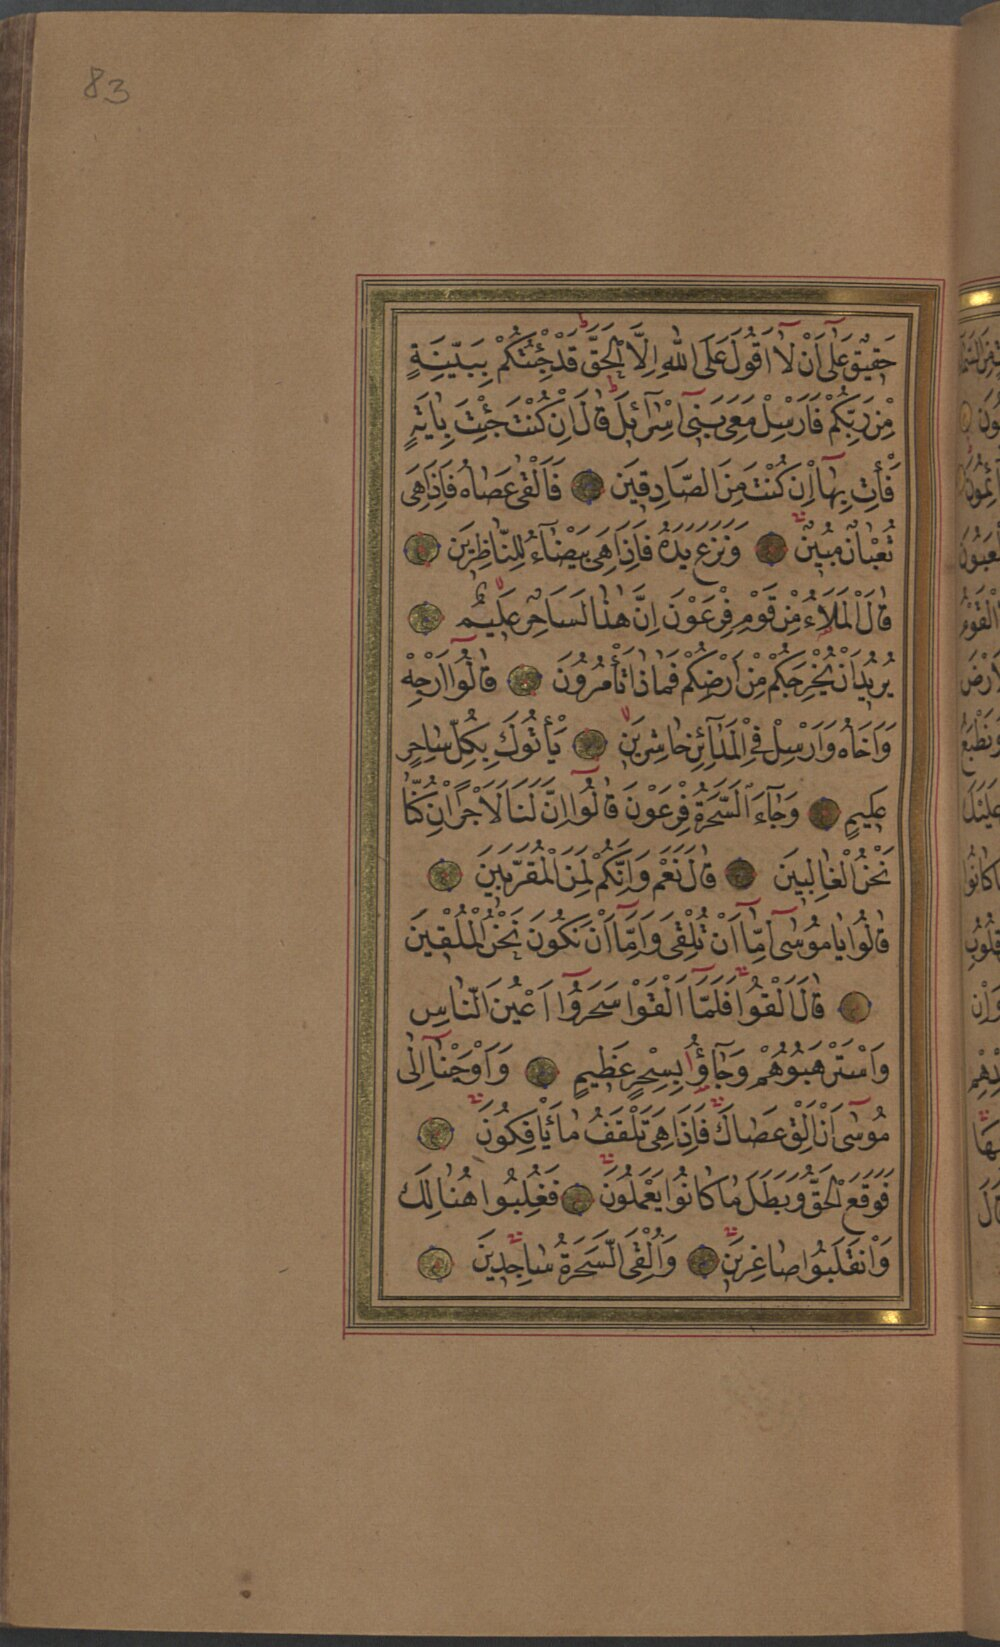 83
حَقِيقٌ عَلٰٓى اَنْ لَٓا اَقُولَ عَلَى اللّٰهِ اِلَّا الْحَقَّ قَدْ جِئْتُكُمْ بِبَيِّنَةٍ
مِنْ رَبِّكُمْ فَاَرْسِلْ مَعِىَ بَنِىٓ اِسْرَٓائِلَ قَالَ اِنْ كُنْتَ جِئْتَ بِاٰيَةٍ
فَأْتِ بِهَٓا اِنْ كُنْتَ مِنَ الصَّادِقِينَ فَاَلْقٰى عَصَاهُ فَاِذَا هِىَ
ثُعْبَانٌ مُبِينٌ وَنَزَعَ يَدَهُ فَاِذَا هِىَ بَيْضَٓاءُ لِلنَّاظِرِينَ
قَالَ الْمَلَاُ مِنْ قَوْمِ فِرْعَوْنَ اِنَّ هٰذَا لَسَاحِرٌ عَلِيمٌ
يُرِيدُ اَنْ يُخْرِجَكُمْ مِنْ اَرْضِكُمْ فَمَاذَا تَأْمُرُونَ قَالُٓوا اَرْجِهْ
وَاَخَاهُ وَاَرْسِلْ فِى الْمَدَٓائِنِ حَاشِرِينَ يَأْتُوكَ بِكُلِّ سَاحِرٍ
عَلِيمٍ وَجَٓاءَ السَّحَرَةُ فِرْعَوْنَ قَالُٓوا اِنَّ لَنَا لَاَجْرًا اِنْ كُنَّا
نَحْنُ الْغَالِبِينَ قَالَ نَعَمْ وَاِنَّكُمْ لَمِنَ الْمُقَرَّبِينَ
قَالُوا يَا مُوسٰٓى اِمَّٓا اَنْ تُلْقِىَ وَاِمَّٓا اَنْ نَكُونَ نَحْنُ الْمُلْقِينَ
قَالَ اَلْقُوا فَلَمَّٓا اَلْقَوْا سَحَرُٓوا اَعْيُنَ النَّاسِ
وَاسْتَرْهَبُوهُمْ وَجَٓاؤُ بِسِحْرٍ عَظِيمٍ وَاَوْحَيْنَٓا اِلٰى
مُوسٰٓى اَنْ اَلْقِ عَصَاكَ فَاِذَا هِىَ تَلْقَفُ مَا يَأْفِكُونَ
فَوَقَعَ الْحَقُّ وَبَطَلَ مَا كَانُوا يَعْمَلُونَ فَغُلِبُوا هُنَالِكَ
وَانْقَلَبُوا صَاغِرِينَ وَاُلْقِىَ السَّحَرَةُ سَاجِدِينَ